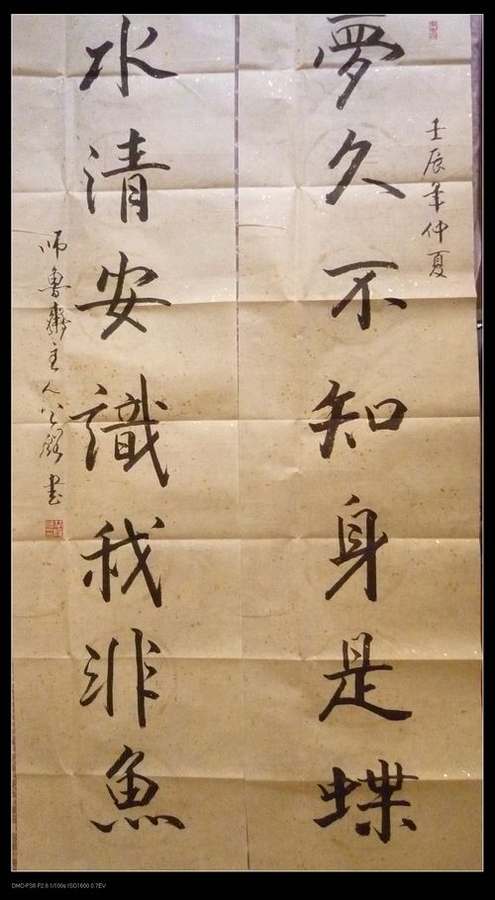 壬辰年仲夏
夢久不知身是蝶
水清安識我非魚
師魯齋主人公館書
DMC-FS6 F2.8 1/100s ISO1600 0.7EV